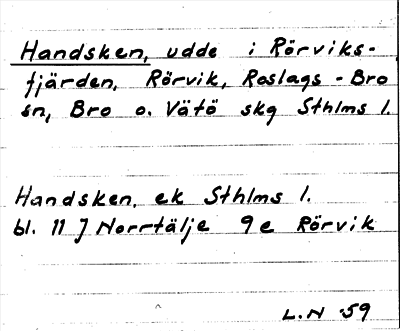 Handsken, udde i Rörviks-
fjärden, Rörvik, Roslags-Bro
sn, Bro o. Vätö skg Sthlms l.
Handsken, ek Sthlms l.
bl. 11 J Norrtälje 9e Rörvik
L.N -59